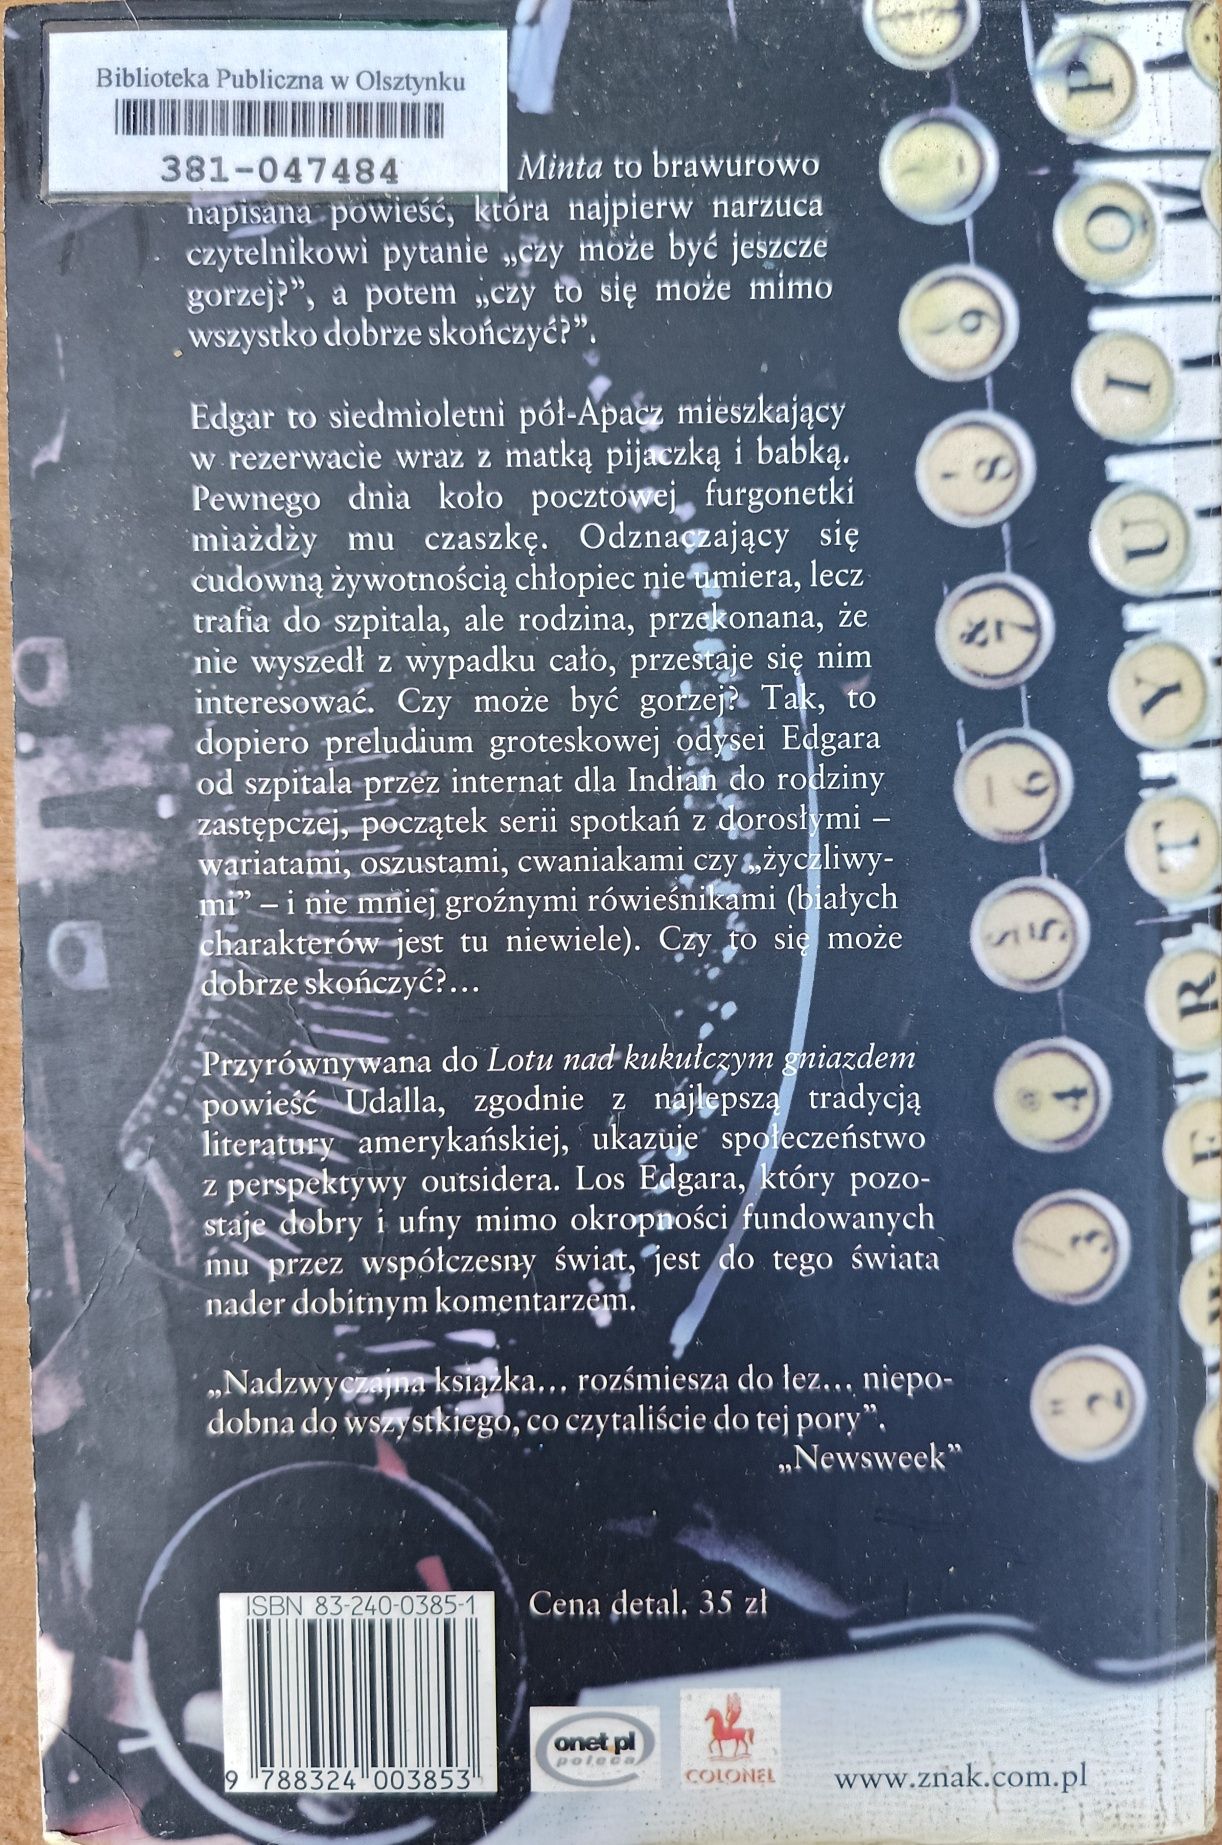 Biblioteka Publiczna w Olsztynku
381-047484
Minta to brawurowo
napisana powieść, która najpierw narzuca
czytelnikowi pytanie „czy może być jeszcze
gorzej?”, a potem „czy to się może mimo
wszystko dobrze skończyć?”.
Edgar to siedmioletni pół-Apacz mieszkający
w rezerwacie wraz z matką pijaczką i babką.
Pewnego dnia koło pocztowej furgonetki
miażdży mu czaszkę. Odznaczający się
cudowną żywotnością chłopiec nie umiera, lecz
trafia do szpitala, ale rodzina, przekonana, że
nie wyszedł z wypadku cało, przestaje się nim
interesować. Czy może być gorzej? Tak, to
dopiero preludium groteskowej odysei Edgara
od szpitala przez internat dla Indian do rodziny
zastępczej, początek serii spotkań z dorosłymi –
wariatami, oszustami, cwaniakami czy „życzliwy-
mi” – i nie mniej groźnymi rówieśnikami (białych
charakterów jest tu niewiele). Czy to się może
dobrze skończyć?...
Przyrównywana do Lotu nad kukułczym gniazdem
powieść Udalla, zgodnie z najlepszą tradycją
literatury amerykańskiej, ukazuje społeczeństwo
z perspektywy outsidera. Los Edgara, który pozo-
staje dobry i ufny mimo okropności fundowanych
mu przez współczesny świat, jest do tego świata
nader dobitnym komentarzem.
„Nadzwyczajna książka... rozśmiesza do łez... niepo-
dobna do wszystkiego, co czytaliście do tej pory”.
„Newsweek”
ISBN 83-240-0385-1
9 788324 003853
Cena detal. 35 zł
onet.pl
poleca
COLONEL
www.znak.com.pl
P
O
I
U
Y
T
R
E
W
9
8
& 7
6
5
4
3
" 2